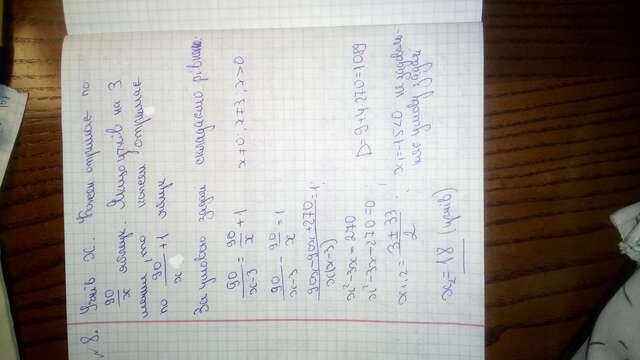 № 8. Учнів x. Кожен отримає по
90/x яблук. Якщо учнів на 3
менше, то кожен отримає
по 90/x + 1 яблук
За умовою задачі складаємо рівняння:
90/x-3 = 90/x + 1
x≠0, x≠3, x>0
90/x-3 - 90/x = 1
90x-90x+270/x(x-3) = 1
x²-3x=270
x²-3x-270=0
D=9+4·270=1089
x₁,₂ = 3±33/2
x₁=-15<0 не задоволь-
няє умову задачі
x₂=18 (учнів)